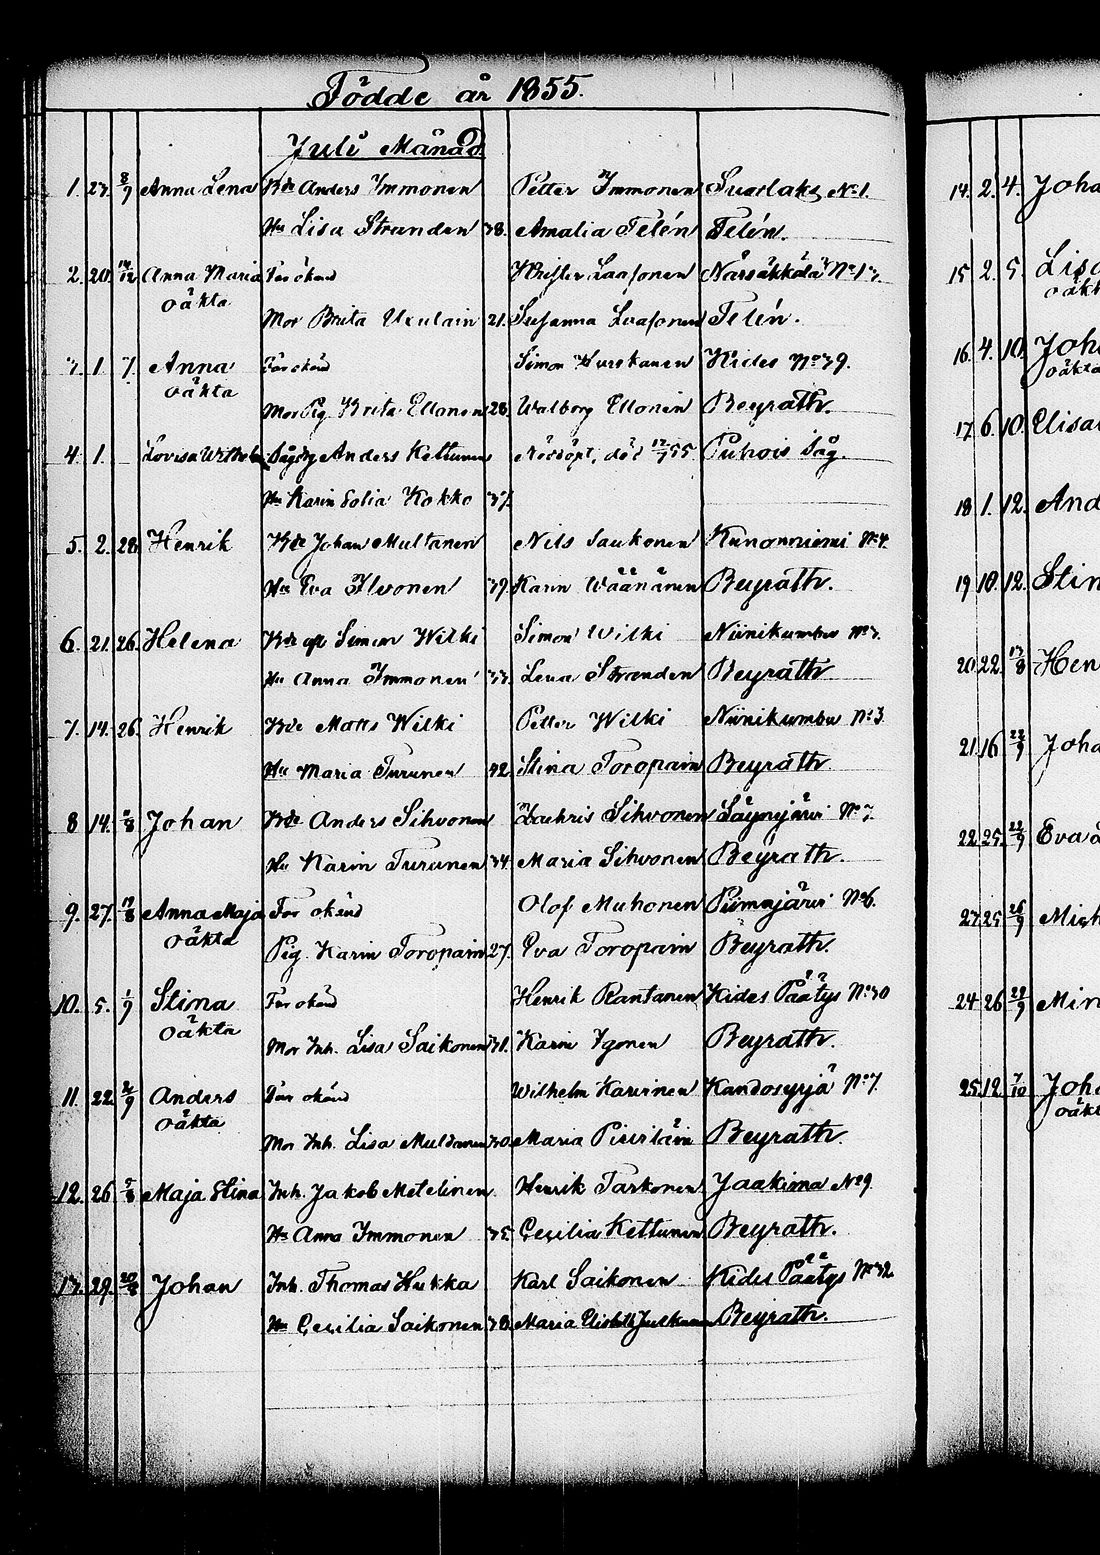 Födde år 1855.
Juli Månad
1. 27. 8/9 Anna Lena Bde Anders Immonen Petter Immonen Suorlaks No 1.
Hu Lisa Stranden 38. Amalia Telén Telén.
2. 20. Anna Maria Far okänd Laasonen Närsäkkälä No 13.
oäkta
Mor Brita 21. Susanna Laasonen Telén.
3. 1. 7. Anna Far okänd Simon Hurskanen Kides No 39.
oäkta
Mor Pig. Brita Ellonen 28. Walborg Ellonen Beyrath.
4. 1. Lovisa Anders Kettunen Nöddöpt, död 12/7 55 Puhois Såg.
Hu Karin Sofia Kokko 37.
5. 2. 28. Henrik Bde Johan Multanen Nils Saukonen Kunonniemi No 4.
Hu Eva Ilvonen 39. Karin Wäänänen Beyrath.
6. 21. 26. Helena Bde Simon Wilki Simon Wilki Niinikumbu No 3.
Hu Anna Immonen 33. Lena Stranden Beyrath.
7. 14. 26. Henrik Bde Matts Wilki Petter Wilki Niinikumbu No 3
Hu Maria Turunen 42. Stina Toropain Beyrath.
8 14. 2/8 Johan Bde Anders Sihvonen Zachris Sihvonen Säynejärvi No 7.
Hu Karin Turunen 34. Maria Sihvonen Beyrath.
9. 27. 19/8 Anna Maja Far okänd Olof Muhonen Piimäjärvi No 6.
oäkta
Pig. Karin Toropain 27. Eva Toropain Beyrath.
10. 5. 1/9 Stina Far okänd Henrik Rantanen Kides Päätys No 30
oäkta
Mor Inh. Lisa Saikonen 31. Karin Igonen Beyrath.
11. 22. 2/9 Anders Far okänd Wilhelm Karvinen Kandosyrjä No 7.
oäkta
Mor Inh. Lisa Muldanen 30. Maria Beyrath.
12. 26. 5/8 Maja Stina Inh. Jakob Metelinen Henrik Tarkonen Jaakima No 9
Hu Anna Immonen 35. Cecilia Kettunen Beyrath.
13. 29. Johan Inh. Thomas Hukka Karl Saikonen Kides Päätys No 32
Hu Cecilia Saikonen 38. Maria Beyrath.
14. 2. 4. Joha
15 2. 5. Lisa
oäkt
16. 4. 10. Joha
oäkta
17. 6. 10. Elisa
18 1. 12. And
19 10. 12. Stin
20 22. 17/8 Hen
21 16 22/9 Joha
22. 25. 23/9 Eva
23. 25 26/9 Mich
24 26 29/9 Min
25. 12. 7/10 Joh
oäkt